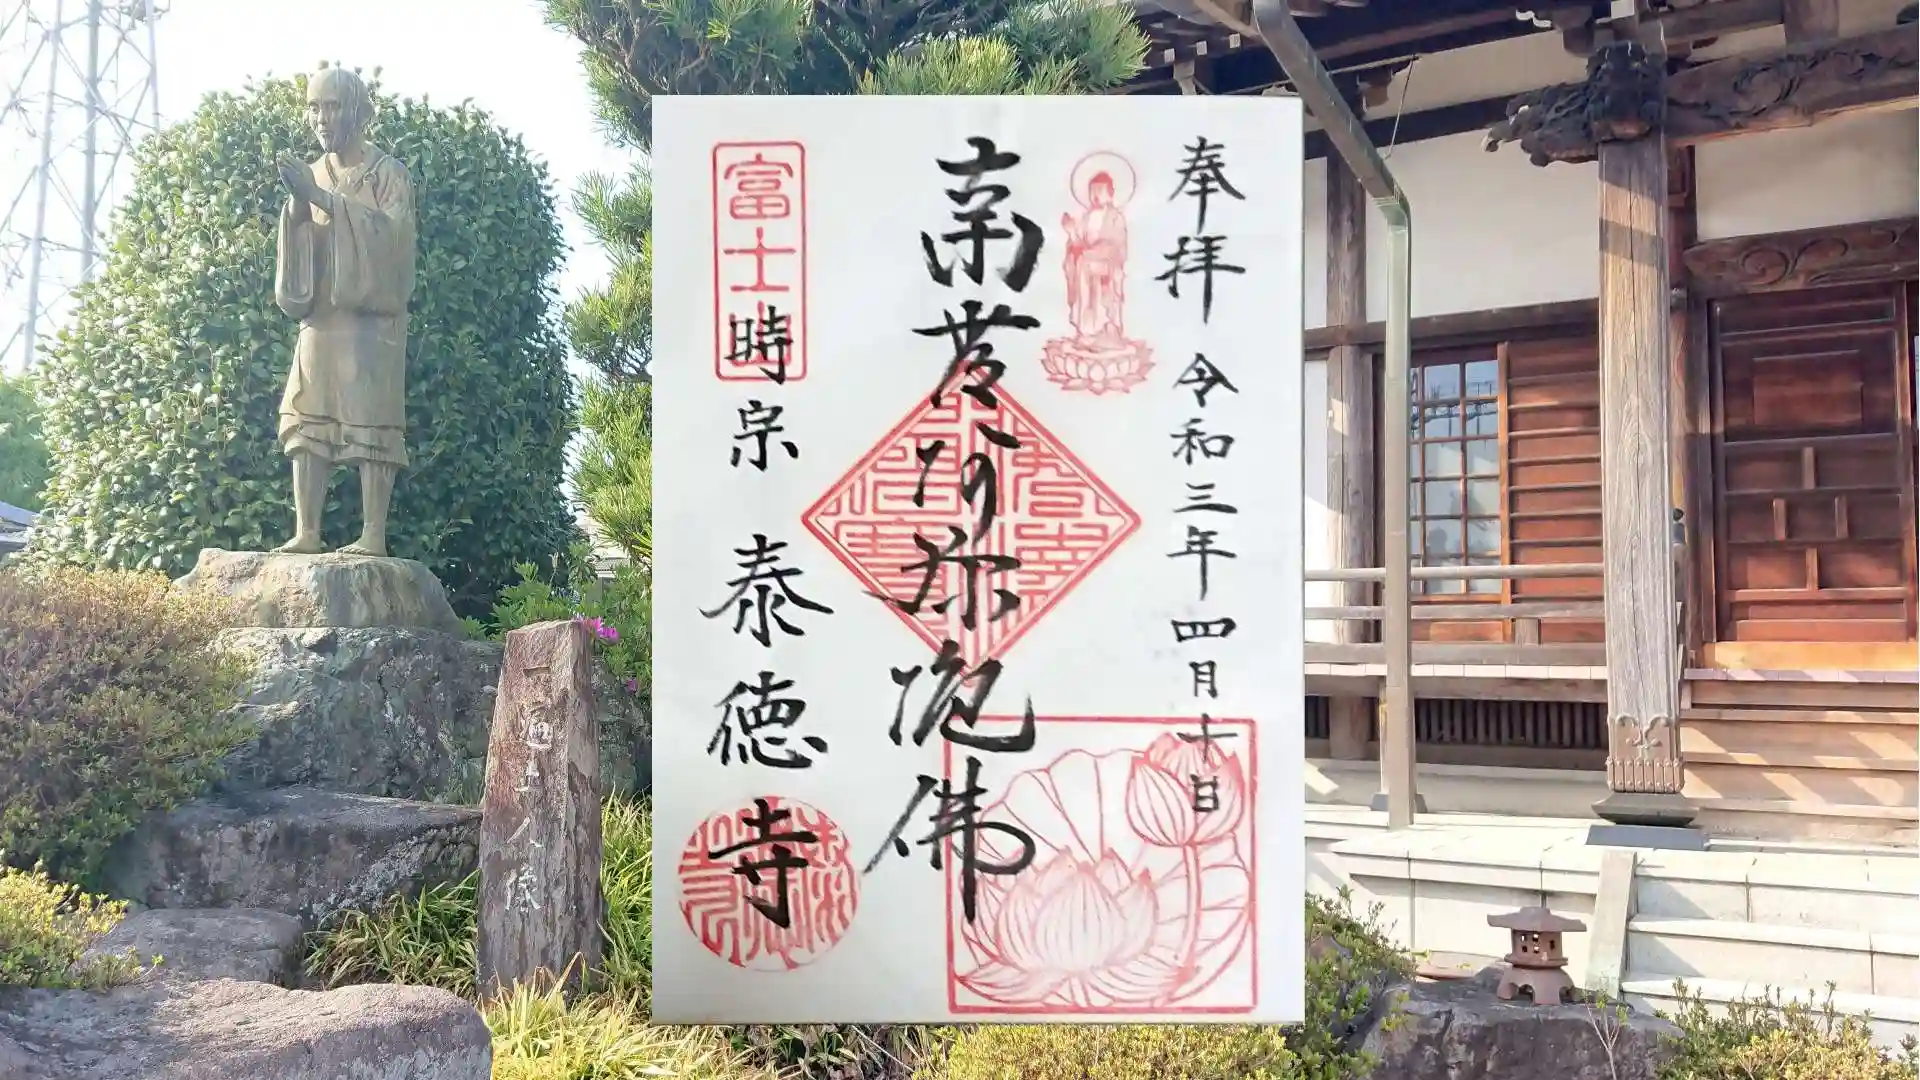 奉拝 令和三年四月十日
南無阿弥陀佛
富士
時宗 泰徳寺
一遍上人像